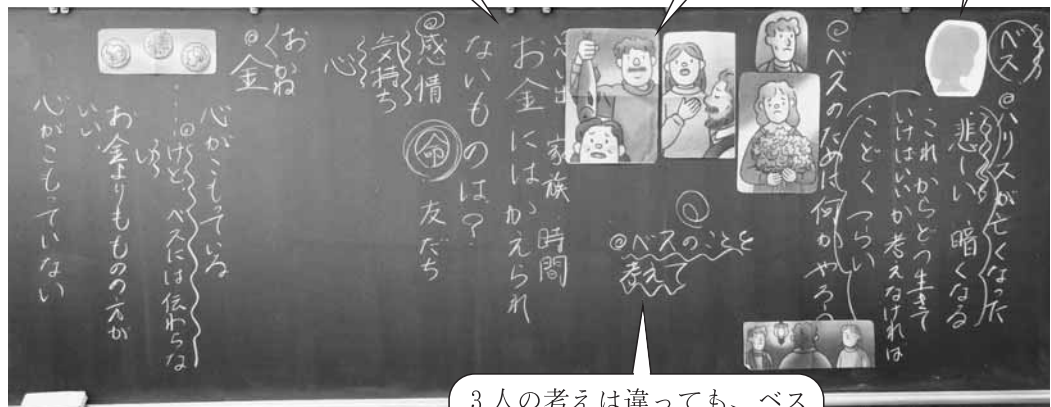 ベス
◎ハリスが亡くなった
悲しい 暗くなる
これからどう生きて
いけばいいか考えなければ
こどく つらい
◎ベスのために何かやろう
◎ベスのことを
考えて
思い出 家族 時間
お金にはかえられ
ないものは?
◎感情 命 友だち
気持ち
心
おかね
◎金
心がこもっている
……けど、ベスには伝わらな
い
お金よりももの の方が
いい
心がこもっていない
3人の考えは違っても、ベス